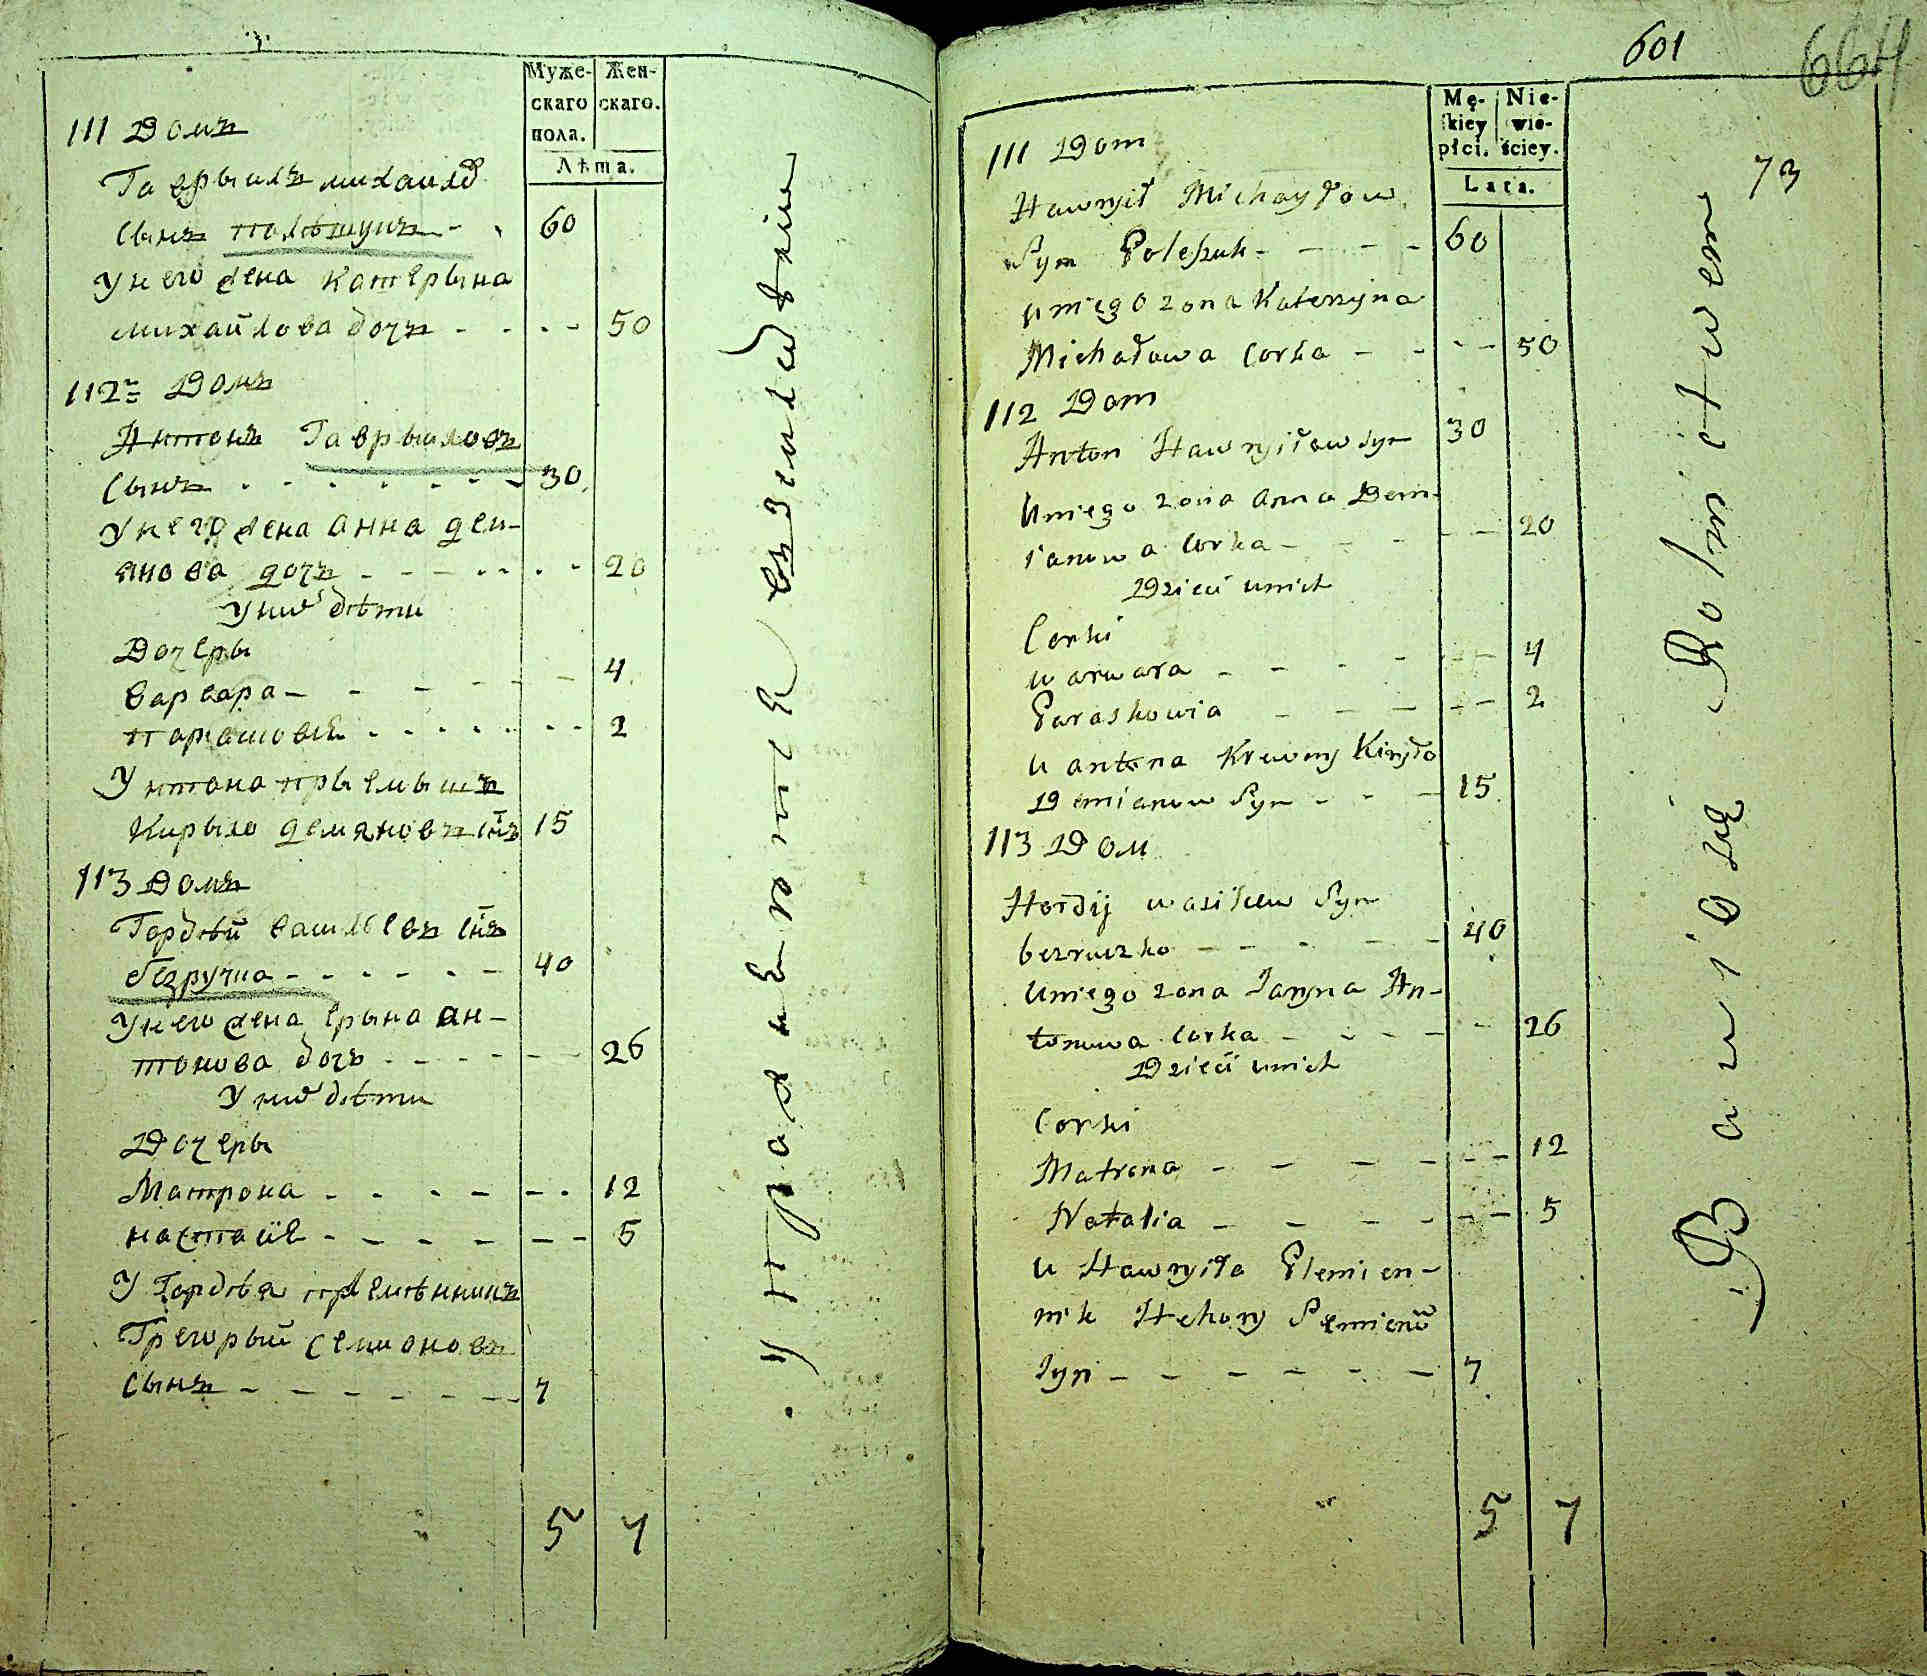 Муже-
скаго
пола.
Жен-
скаго.
Лѣта.
111 Домъ
Гаврыилъ михаилов
сынъ полѣшукъ - - 60
У него жена катерына
михайлова дочъ - - - - 50
112 Домъ
Антонъ Гаврыиловъ
сынъ - - - - - - - 30
У него жена анна дем-
янова дочъ - - - - - - - 20
У них дѣти
Дочеры
варвара - - - - - - 4
парасковіе - - - - - - - - 2
У нтона прыемышъ
Кирыло демяновъ снъ 15
113 Домъ
Гордѣй василевъ снъ
безручка - - - - - - 40
У него жена ерына ан-
тонова дочъ - - - - - - 26
У них дѣти
Дочеры
Матрона - - - - - - 12
настайѣ - - - - - - - 5
У Гордѣя племѣнникъ
Грегорый семионовъ
сынъ - - - - - - - 7
5 7
601
664
73
Mę-
skiey
płci.
Nie-
wie-
ściey.
Lata.
111 Dom
Hawrył Michayłow
Syn Poleszuk - - - - 60
u niego zona Katerzyna
Michałowa Corka - - - - 50
112 Dom
Anton Hawryiłow syn 30
U niego zona Anna Dem-
ianowa Corka - - - - - - 20
Dzieci u nich
Corki
warwara - - - - - - 4
Paraskowia - - - - - - 2
u antona Krewny Kiryło
Demianow Syn - - - 15
113 Dom
Hordij wasilew Syn
bezruczko - - - - - 40
U niego zona Jaryna An-
tonowa Corka - - - - - 26
Dzieci u nich
Corki
Matrona - - - - - - 12
Natalia - - - - - - 5
u Hawryiła Plemien-
nik Hehory Semienow
Syn - - - - - - 7
5 7
Bawiące Rolnictwem